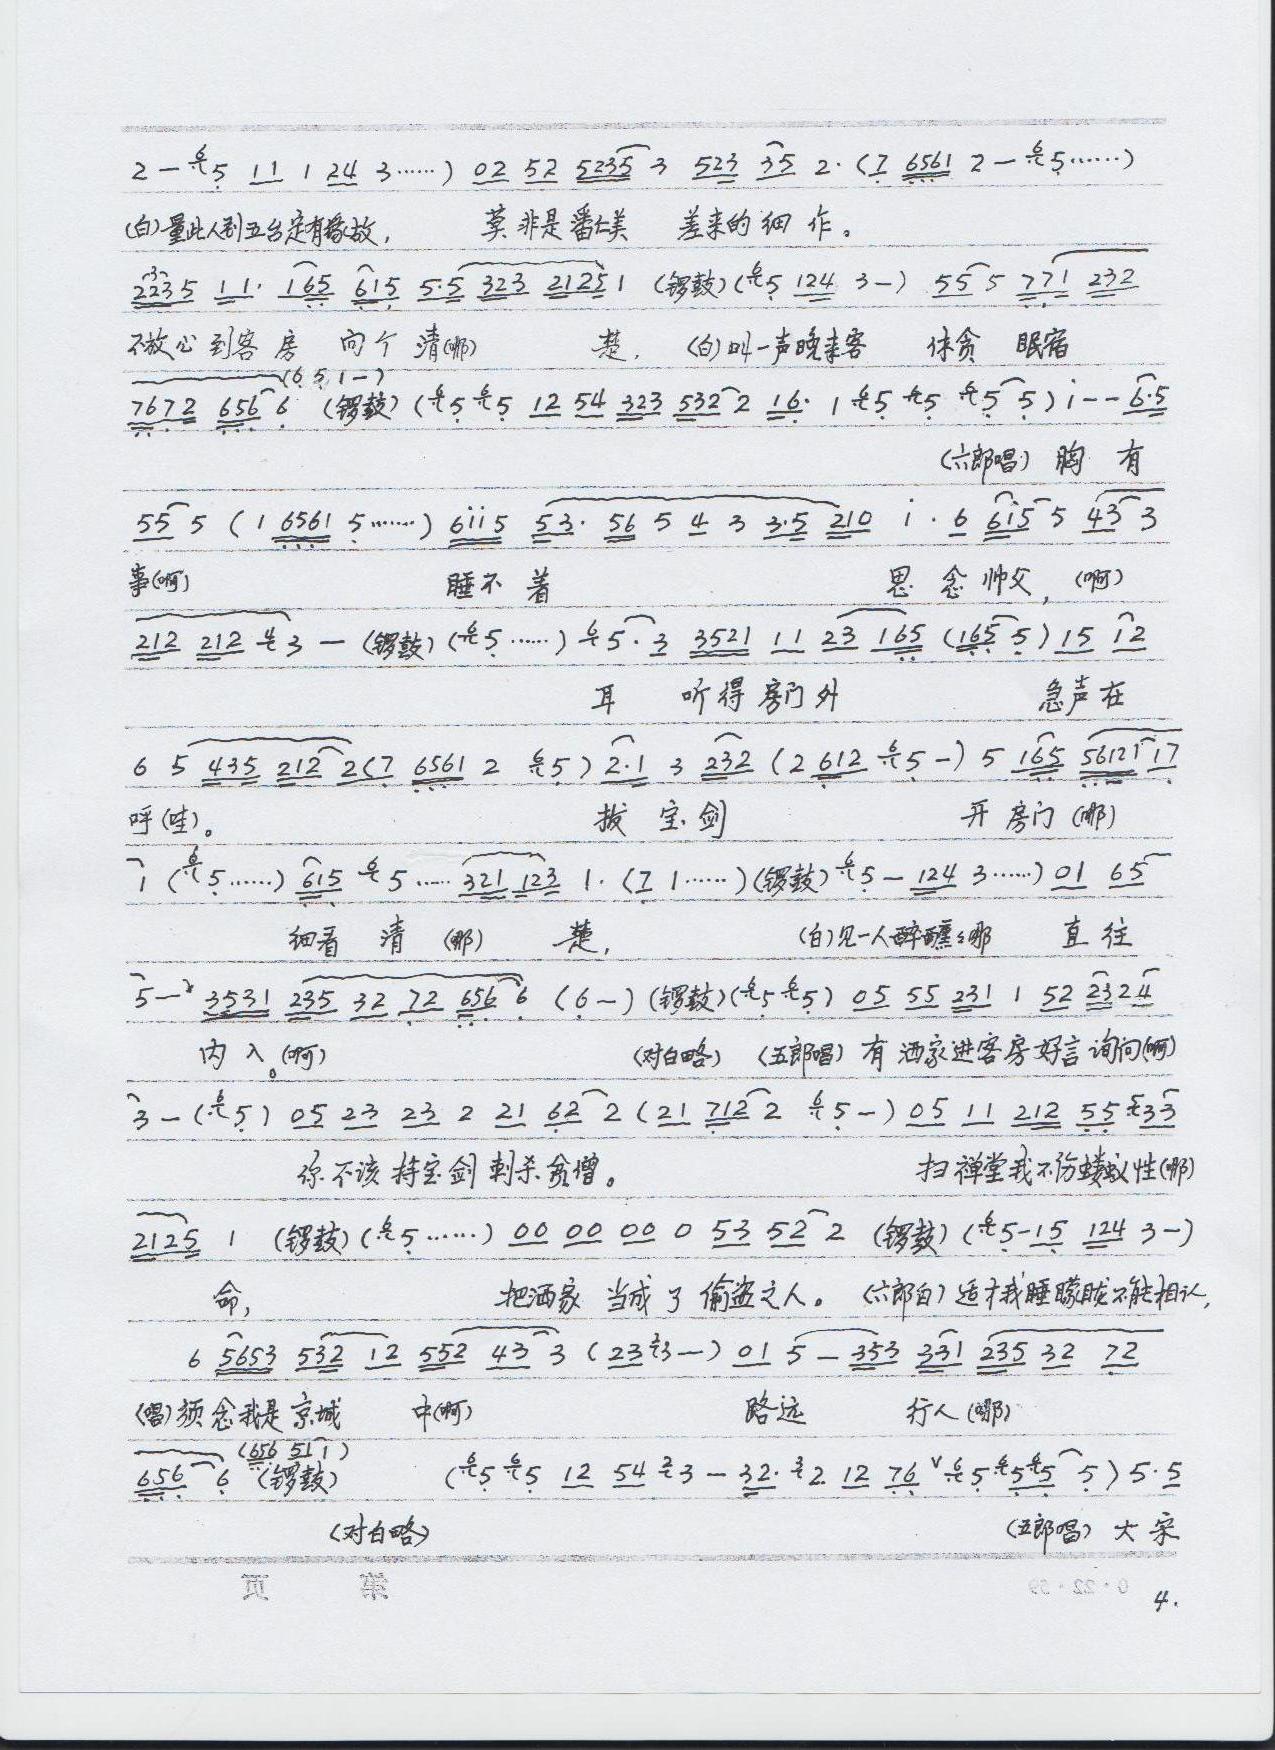 2 — 6 5 11 1 24 3……) 02 52 5235 3 523 35 2· (7 6561 2 — 6 5……)
(白)量此人到五台定有缘故, 莫非是潘仁美 差来的细作。
3 2235 11· 165 615 5·5 323 2125 1 (锣鼓) (6 5 124 3 —) 55 5 771 232
不放心到客房 问个清(哪) 楚, (白)叫一声晚来客 休贪 眠宿
(6 5 1 —)
7672 656 6 (锣鼓) (6 5 6 5 12 54 323 532 2 16· 1 6 5 6 5 6 5 5) i — — 6·5
(六郎唱) 胸有
55 5 (1 6561 5……) 6ii5 53· 56 5 4 3 3·5 210 i· 6 6i5 5 43 3
事(啊) 睡不着 思念帅父, (啊)
212 212 4 3 — (锣鼓) (6 5……) 6 5· 3 3521 11 23 165 (165 5) 15 12
耳 听得房门外 急声在
6 5 435 212 2 (7 6561 2 6 5) 2·1 3 232 (2 612 6 5 —) 5 165 56121 17
呼(哇)。 拔宝剑 开房门(哪)
1 (6 5……) 615 6 5…… 321 123 1· (7 1……) (锣鼓) 6 5 — 124 3……) 01 65
细看清(哪) 楚, (白)见一人醉醺々哪 直往
5 — 3531 235 32 72 656 6 (6 —) (锣鼓) (6 5 6 5) 05 55 231 1 52 2324
内入。(啊) (对白略) (五郎唱) 有洒家进客房好言询问(啊)
3 — (6 5) 05 23 23 2 21 62 2 (21 712 2 6 5 —) 05 11 212 55 5 33
你不该持宝剑刺杀贫僧。 扫禅堂我不伤蝼蚁性(哪)
2125 1 (锣鼓) (6 5……) 00 00 00 0 53 52 2 (锣鼓) (6 5 — 15 124 3 —)
命, 把洒家当成了偷盗之人。 (六郎白) 适才我睡朦胧不能相认,
6 5653 532 12 552 43 3 (23 2 3 —) 01 5 — 353 331 235 32 72
(唱)须念我是京城 中(啊) 路远 行人(哪)
(656 511)
656 6 (锣鼓) (6 5 6 5 12 54 2 3 — 32· 3 2 12 76 ∨ 6 5 6 5 6 5 5) 5·5
(对白略) (五郎唱) 大宋
第 页 0·22·59
4.